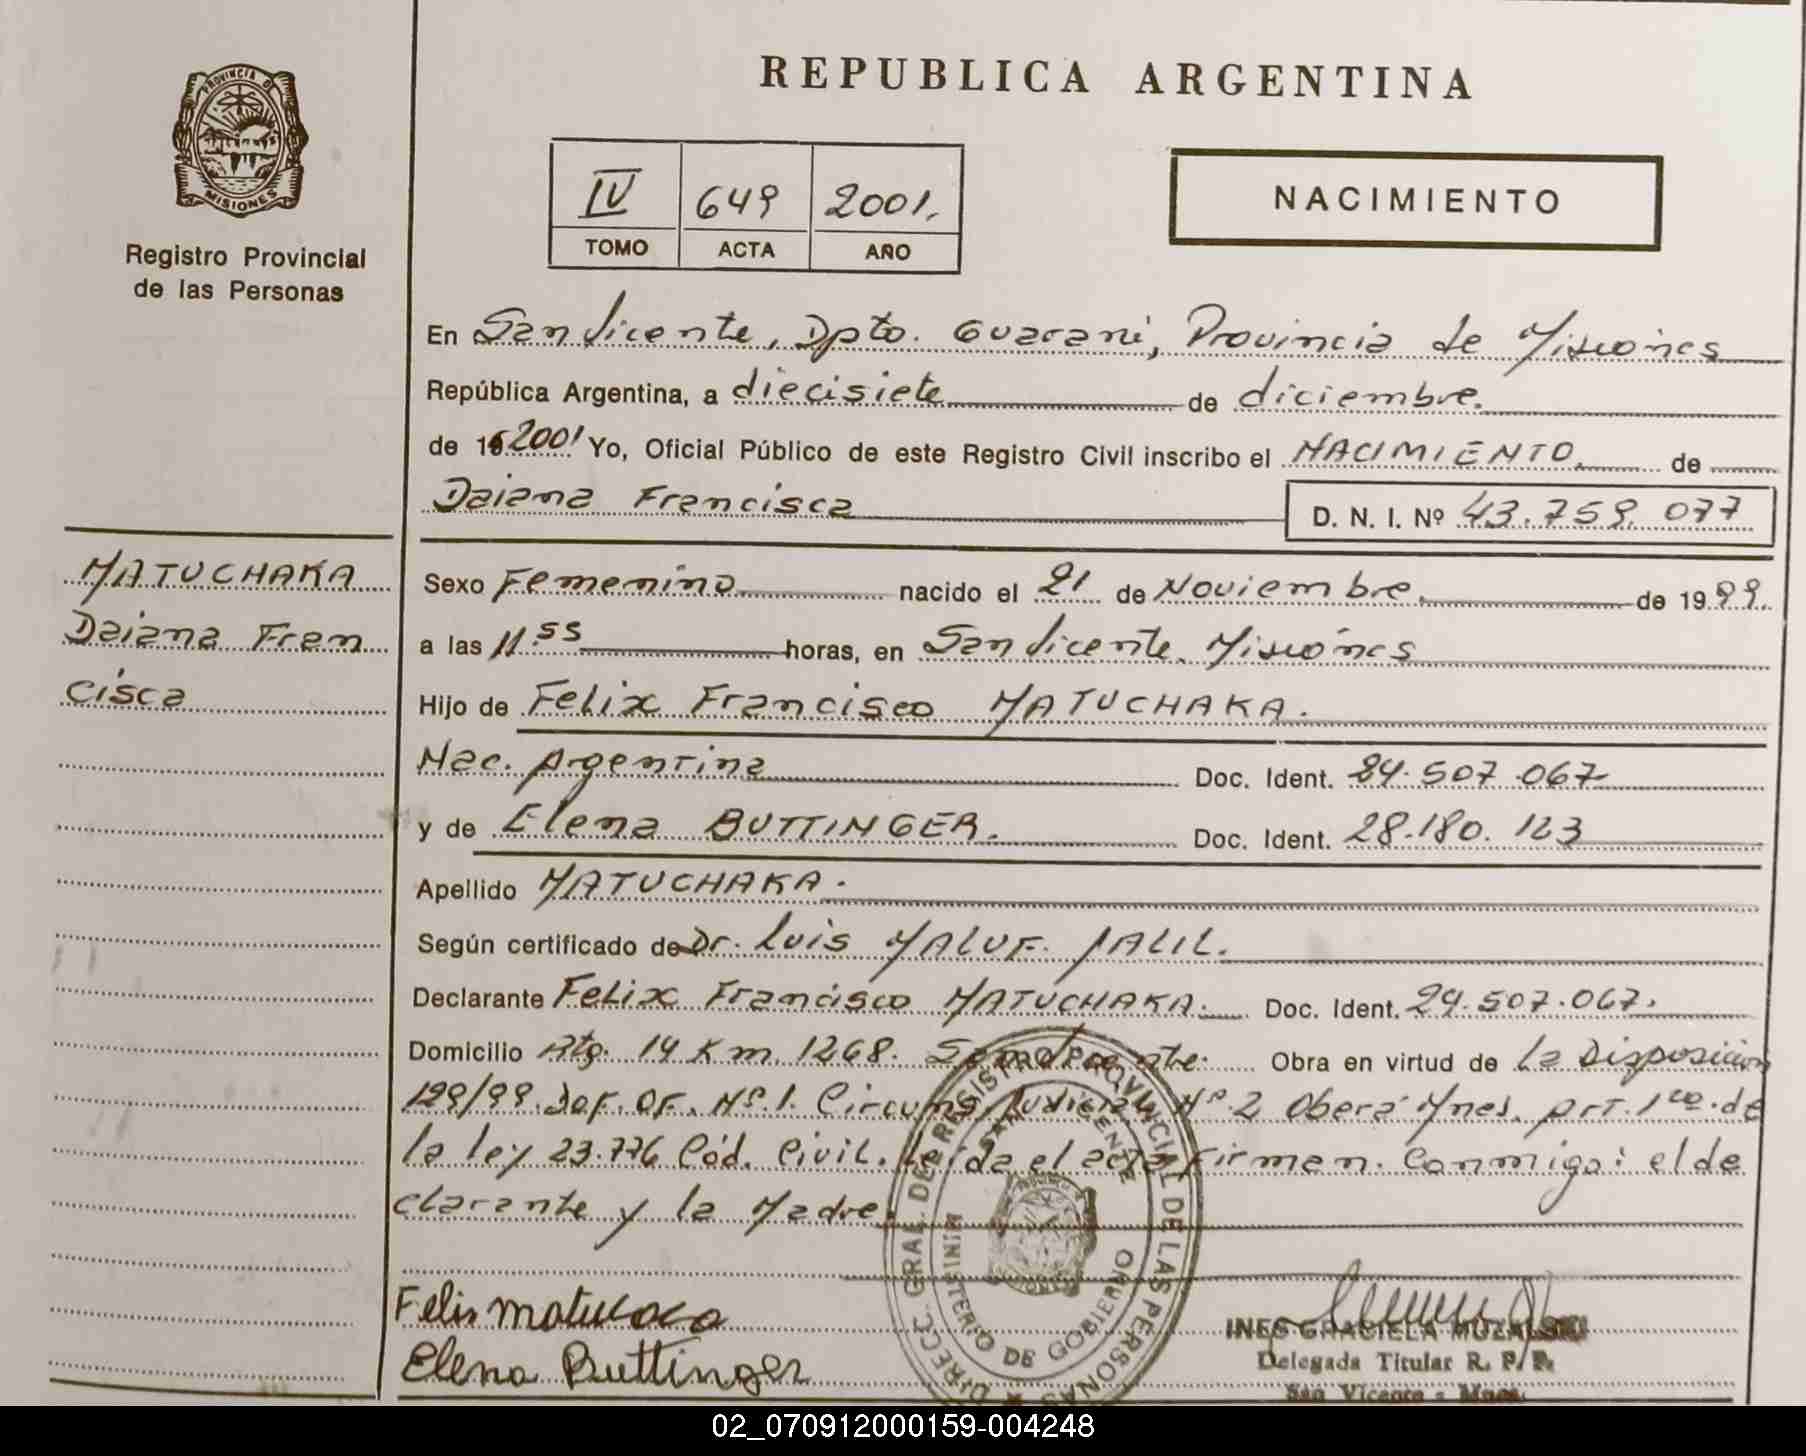 REPUBLICA ARGENTINA
PROVINCIA D
MISIONES
Registro Provincial
de las Personas
IV 649 2001.
TOMO ACTA AÑO
NACIMIENTO
En San Vicente, Dpto. Guarani, Provincia de Misiones
República Argentina, a diecisiete de diciembre.
de 19 2001 Yo, Oficial Público de este Registro Civil inscribo el NACIMIENTO de
Daiana Francisca
D. N. I. Nº 43.759.077
MATUCHAKA
Daiana Fran
cisca
Sexo Femenino nacido el 21 de Noviembre. de 1999.
a las 11.55 horas, en San Vicente. Misiones
Hijo de Felix Francisco MATUCHAKA.
Nac. Argentina Doc. Ident. 24.507.067
y de Elena BUTTINGER. Doc. Ident. 28.180.123
Apellido MATUCHAKA.
Según certificado de Dr. Luis MALUF. JALIL.
Declarante Felix Francisco MATUCHAKA. Doc. Ident. 24.507.067.
Domicilio Rta. 14 Km 1268. San Vicente. Obra en virtud de la Disposicion
199/99. Def. Of. Nº.1. Circuns. Judicial Nº.2 Oberá Mnes. prt. 1ro. de
la ley 23.776 Cód. Civil. Leída el acta Firman. Conmigo: el de
clarante y la Madre.
DIRECC. GRAL. DE REGISTRO PROVINCIAL DE LAS PERSONAS
SAN VICENTE
MINISTERIO DE GOBIERNO
Elena Buttinger
INES GRACIELA
Delegada Titular R. P. P.
San Vicente - Mnes.
02_070912000159-004248